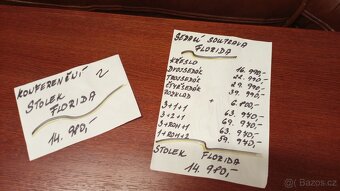 KONFERENČNÍ
STOLEK
FLORIDA
14.980,-
SEDACÍ SOUPRAVA
FLORIDA
KŘESLO 16.990,-
DVOJSEDÁK 22.990,-
TROJSEDÁK 27.990,-
ČTYŘSEDÁK 39.990,-
ROZKLAD + 6.200,-
3+1+1 63.940,-
3+2+1 69.940,-
3+ROH+1 63.940,-
1+ROH+2 59.940,-
STOLEK FLORIDA
14.980,-
bazos.cz